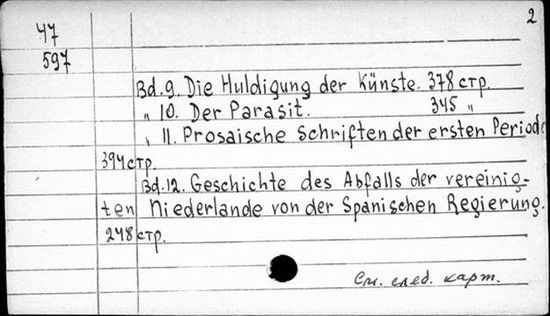 2
47
597
Bd.9. Die Huldigung der Künste. 378 стр.
„ 10. Der Parasit. 345 „
„ 11. Prosaische Schriften der ersten Periode
394 стр.
Bd.12. Geschichte des Abfalls der vereinig-
ten Niederlande von der Spanischen Regierung.
248 стр.
См. след. карт.